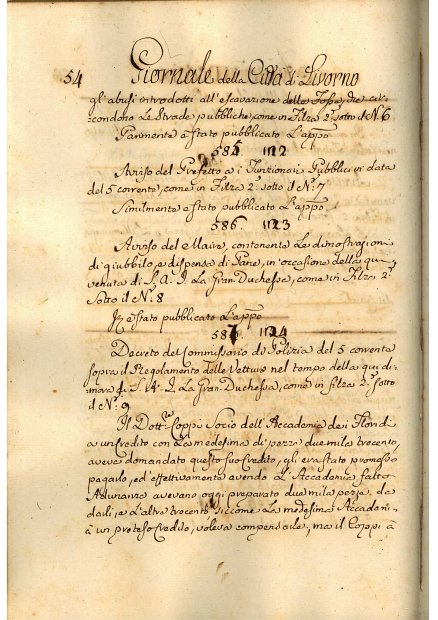 54 Giornale della Città di Livorno
gl'abusi introdotti all'escavazione delle Fosse, che cir-
condono Le Strade pubbliche, come in Filza 2ª sotto il N.° 6
Parimente è stato pubblicato L'appº
585 1122
Avviso del Prefetto a i Funzionari Pubblici in data
del 5 corrente, come in Filza 2ª sotto il N.° 7
Similmente è stato pubblicato L'appº
586. 1123
Avviso del Maire, contenente Le dimostrazioni
di giubbilo, e dispensa di Pane, in occasione della qui
venuta di S. A. I. La Gran-Duchessa, come in Filza 2ª
sotto il N.° 8
È stato pubblicato L'appº
587. 1124
Decreto del Commissario di Polizia del 5 corrente
sopra il Regolamento delle Vetture nel tempo della qui di-
mora di S. A. I. La Gran-Duchessa, come in filza 2ª sotto
il N.° 9
Il Dott.re Coppi Socio dell'Accademia dei Floridi
à un credito con La medesima di pezze due mila trecento,
aveva domandato questo suo credito, gli era stato promesso
pagarlo, ed effettivamente avendo L'Accademia fatto
Adunanza avevano oggi preparato due mila pezze, da
darli, e L'altre trecento siccome La medesima Accademi-
à un preteso credito, voleva compensarle, ma il Coppi à